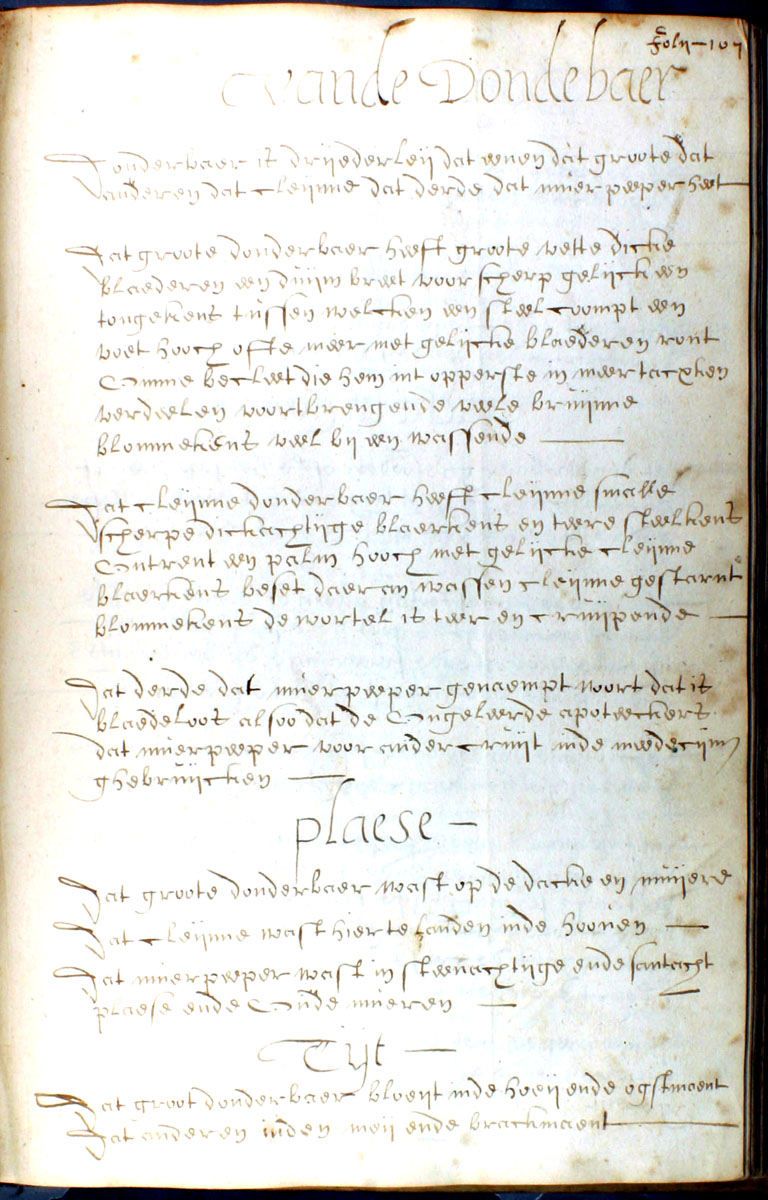 Folij - 107
Vande Dondebaer
Donderbaer is drijederleij dat eenen dat groote dat
anderen dat cleijnne dat derde dat muer peeper heet
Dat groote donderbaer heeft groote vette dicke
blaederen een duijm breet voor scherp gelijck een
tongekens tussen welcken een steel coompt een
voet hooch ofte meer met gelijcke blaederen ront
Omme becleet die hem int opperste in meer tacxken
verdeelen voortbrengende veele bruijnne
blommekens veel bij een wassende
Dat cleijnne donderbaer heeft cleijnne smalle
scherpe dickachtijge blaerkens en teere steelkens
Ontrent een palm hooch met gelijcke cleijnne
blaerkens beset daer an wassen cleijnne gestarnt
blommekens de wortel is teer en cruijpende
Dat derde dat muer peeper genaempt wort dat is
blaedeloos alsoo dat de Ongeleerde apoteeckers
dat muer peeper voor ander cruijt inde medecijnn
ghebruijcken
plaese
Dat groote donderbaer wast op de dacke en muijere
Dat cleijnne wast hier te landen inde hooven
Dat muer peeper wast in steenachtijge ende santacht
plaese ende Oude mueren
Tijt
Dat groot donderbaer bloeijt inde hoeij ende ogstmaent
Dat anderen inden meij ende brackmaent